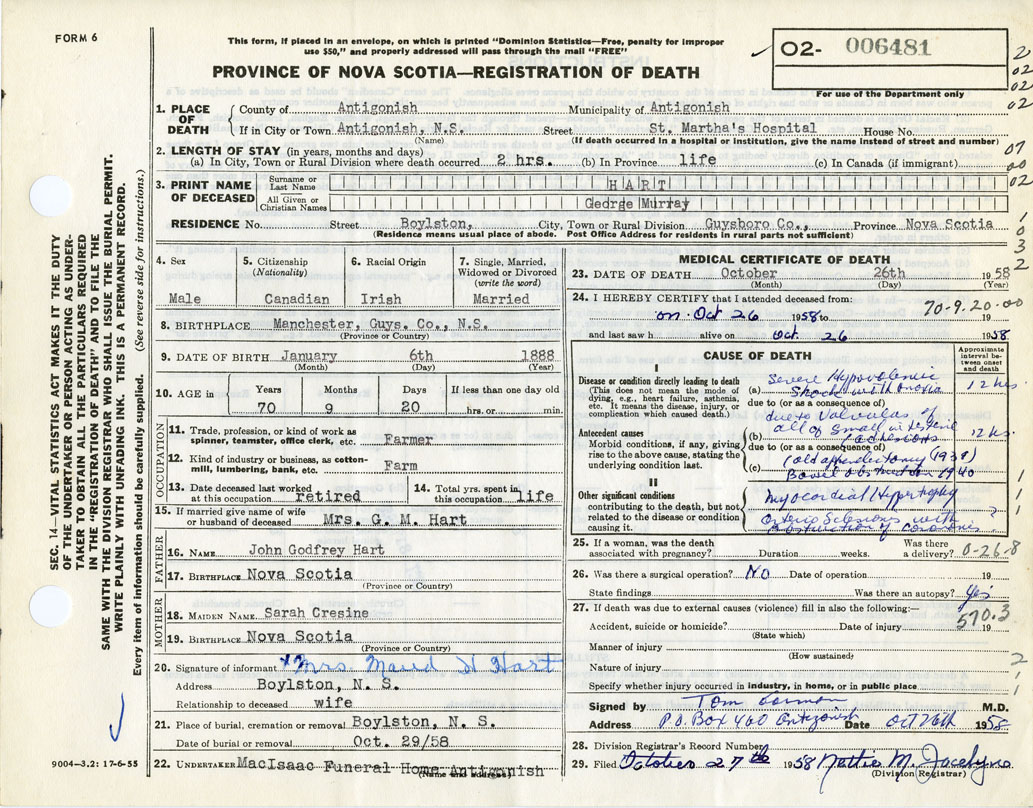 FORM 6
This form, if placed in an envelope, on which is printed "Dominion Statistics—Free, penalty for improper
use $50," and properly addressed will pass through the mail "FREE"
O2- 006481
For use of the Department only
PROVINCE OF NOVA SCOTIA—REGISTRATION OF DEATH
1. PLACE OF DEATH
County of Antigonish Municipality of Antigonish
If in City or Town Antigonish, N.S. Street St. Martha's Hospital House No.
(Name) (If death occurred in a hospital or institution, give the name instead of street and number)
2. LENGTH OF STAY (in years, months and days)
(a) In City, Town or Rural Division where death occurred 2 hrs. (b) In Province life (c) In Canada (if immigrant)
3. PRINT NAME OF DECEASED
Surname or Last Name HART
All Given or Christian Names George Murray
RESIDENCE No. Street Boylston, City, Town or Rural Division Guysboro Co., Province Nova Scotia
(Residence means usual place of abode. Post Office Address for residents in rural parts not sufficient)
4. Sex
Male
5. Citizenship
(Nationality)
Canadian
6. Racial Origin
Irish
7. Single, Married, Widowed or Divorced
(write the word)
Married
8. BIRTHPLACE Manchester, Guys. Co., N.S.
(Province or Country)
9. DATE OF BIRTH January 6th 1888
(Month) (Day) (Year)
10. AGE in
Years Months Days If less than one day old
70 9 20 hrs. or min.
OCCUPATION
11. Trade, profession, or kind of work as
spinner, teamster, office clerk, etc. Farmer
12. Kind of industry or business, as cotton-
mill, lumbering, bank, etc. Farm
13. Date deceased last worked
at this occupation retired
14. Total yrs. spent in
this occupation life
15. If married give name of wife
or husband of deceased Mrs. G. M. Hart
FATHER
16. NAME John Godfrey Hart
17. BIRTHPLACE Nova Scotia
(Province or Country)
MOTHER
18. MAIDEN NAME Sarah Cresine
19. BIRTHPLACE Nova Scotia
(Province or Country)
20. Signature of informant Mrs. Maud H Hart
Address Boylston, N. S.
Relationship to deceased wife
21. Place of burial, cremation or removal Boylston, N. S.
Date of burial or removal Oct. 29/58
22. UNDERTAKER MacIsaac Funeral Home Antigonish
(Name and address)
MEDICAL CERTIFICATE OF DEATH
23. DATE OF DEATH October 26th 1958
(Month) (Day) (Year)
24. I HEREBY CERTIFY that I attended deceased from: 70-9.20-00
on Oct 26 1958 to 19
and last saw h alive on Oct. 26 1958
CAUSE OF DEATH
Approximate interval between onset and death
I
Disease or condition directly leading to death
(This does not mean the mode of
dying, e.g., heart failure, asthenia,
etc. It means the disease, injury, or
complication which caused death.)
(a) Severe Hypovolemic
Shock with anoxia 12 hrs.
due to (or as a consequence of)
due to Valvulus of
all of small intestine
Antecedent causes
Morbid conditions, if any, giving
rise to the above cause, stating the
underlying condition last.
(b) (adhesions 12 hrs.
due to (or as a consequence of)
(old appendectomy (1939)
(c) Bowel obstruction 1940
II
Other significant conditions
contributing to the death, but not
related to the disease or condition
causing it.
myocardial Hypertrophy
with
25. If a woman, was the death
associated with pregnancy? Duration weeks. Was there a delivery? 0-26-8
26. Was there a surgical operation? NO Date of operation 19
State findings Was there an autopsy? Yes
27. If death was due to external causes (violence) fill in also the following:— 570.3
Accident, suicide or homicide? Date of injury 19
(State which)
Manner of injury
(How sustained)
Nature of injury
Specify whether injury occurred in industry, in home, or in public place
Signed by Tom Gorman M.D.
Address P.O. Box 460 Antigonish Date Oct 26th 1958
28. Division Registrar's Record Number
29. Filed October 27th 1958 Nettie M.
(Division Registrar)
SEC. 14—VITAL STATISTICS ACT MAKES IT THE DUTY
OF THE UNDERTAKER OR PERSON ACTING AS UNDER-
TAKER TO OBTAIN ALL THE PARTICULARS REQUIRED
IN THE "REGISTRATION OF DEATH" AND TO FILE THE
SAME WITH THE DIVISION REGISTRAR WHO SHALL ISSUE THE BURIAL PERMIT.
WRITE PLAINLY WITH UNFADING INK. THIS IS A PERMANENT RECORD.
Every item of information should be carefully supplied. (See reverse side for instructions.)
9004—3.2: 17-6-55
2
02
02
02
07
00
02
1
0
3
2
1
1
1
2
1
1